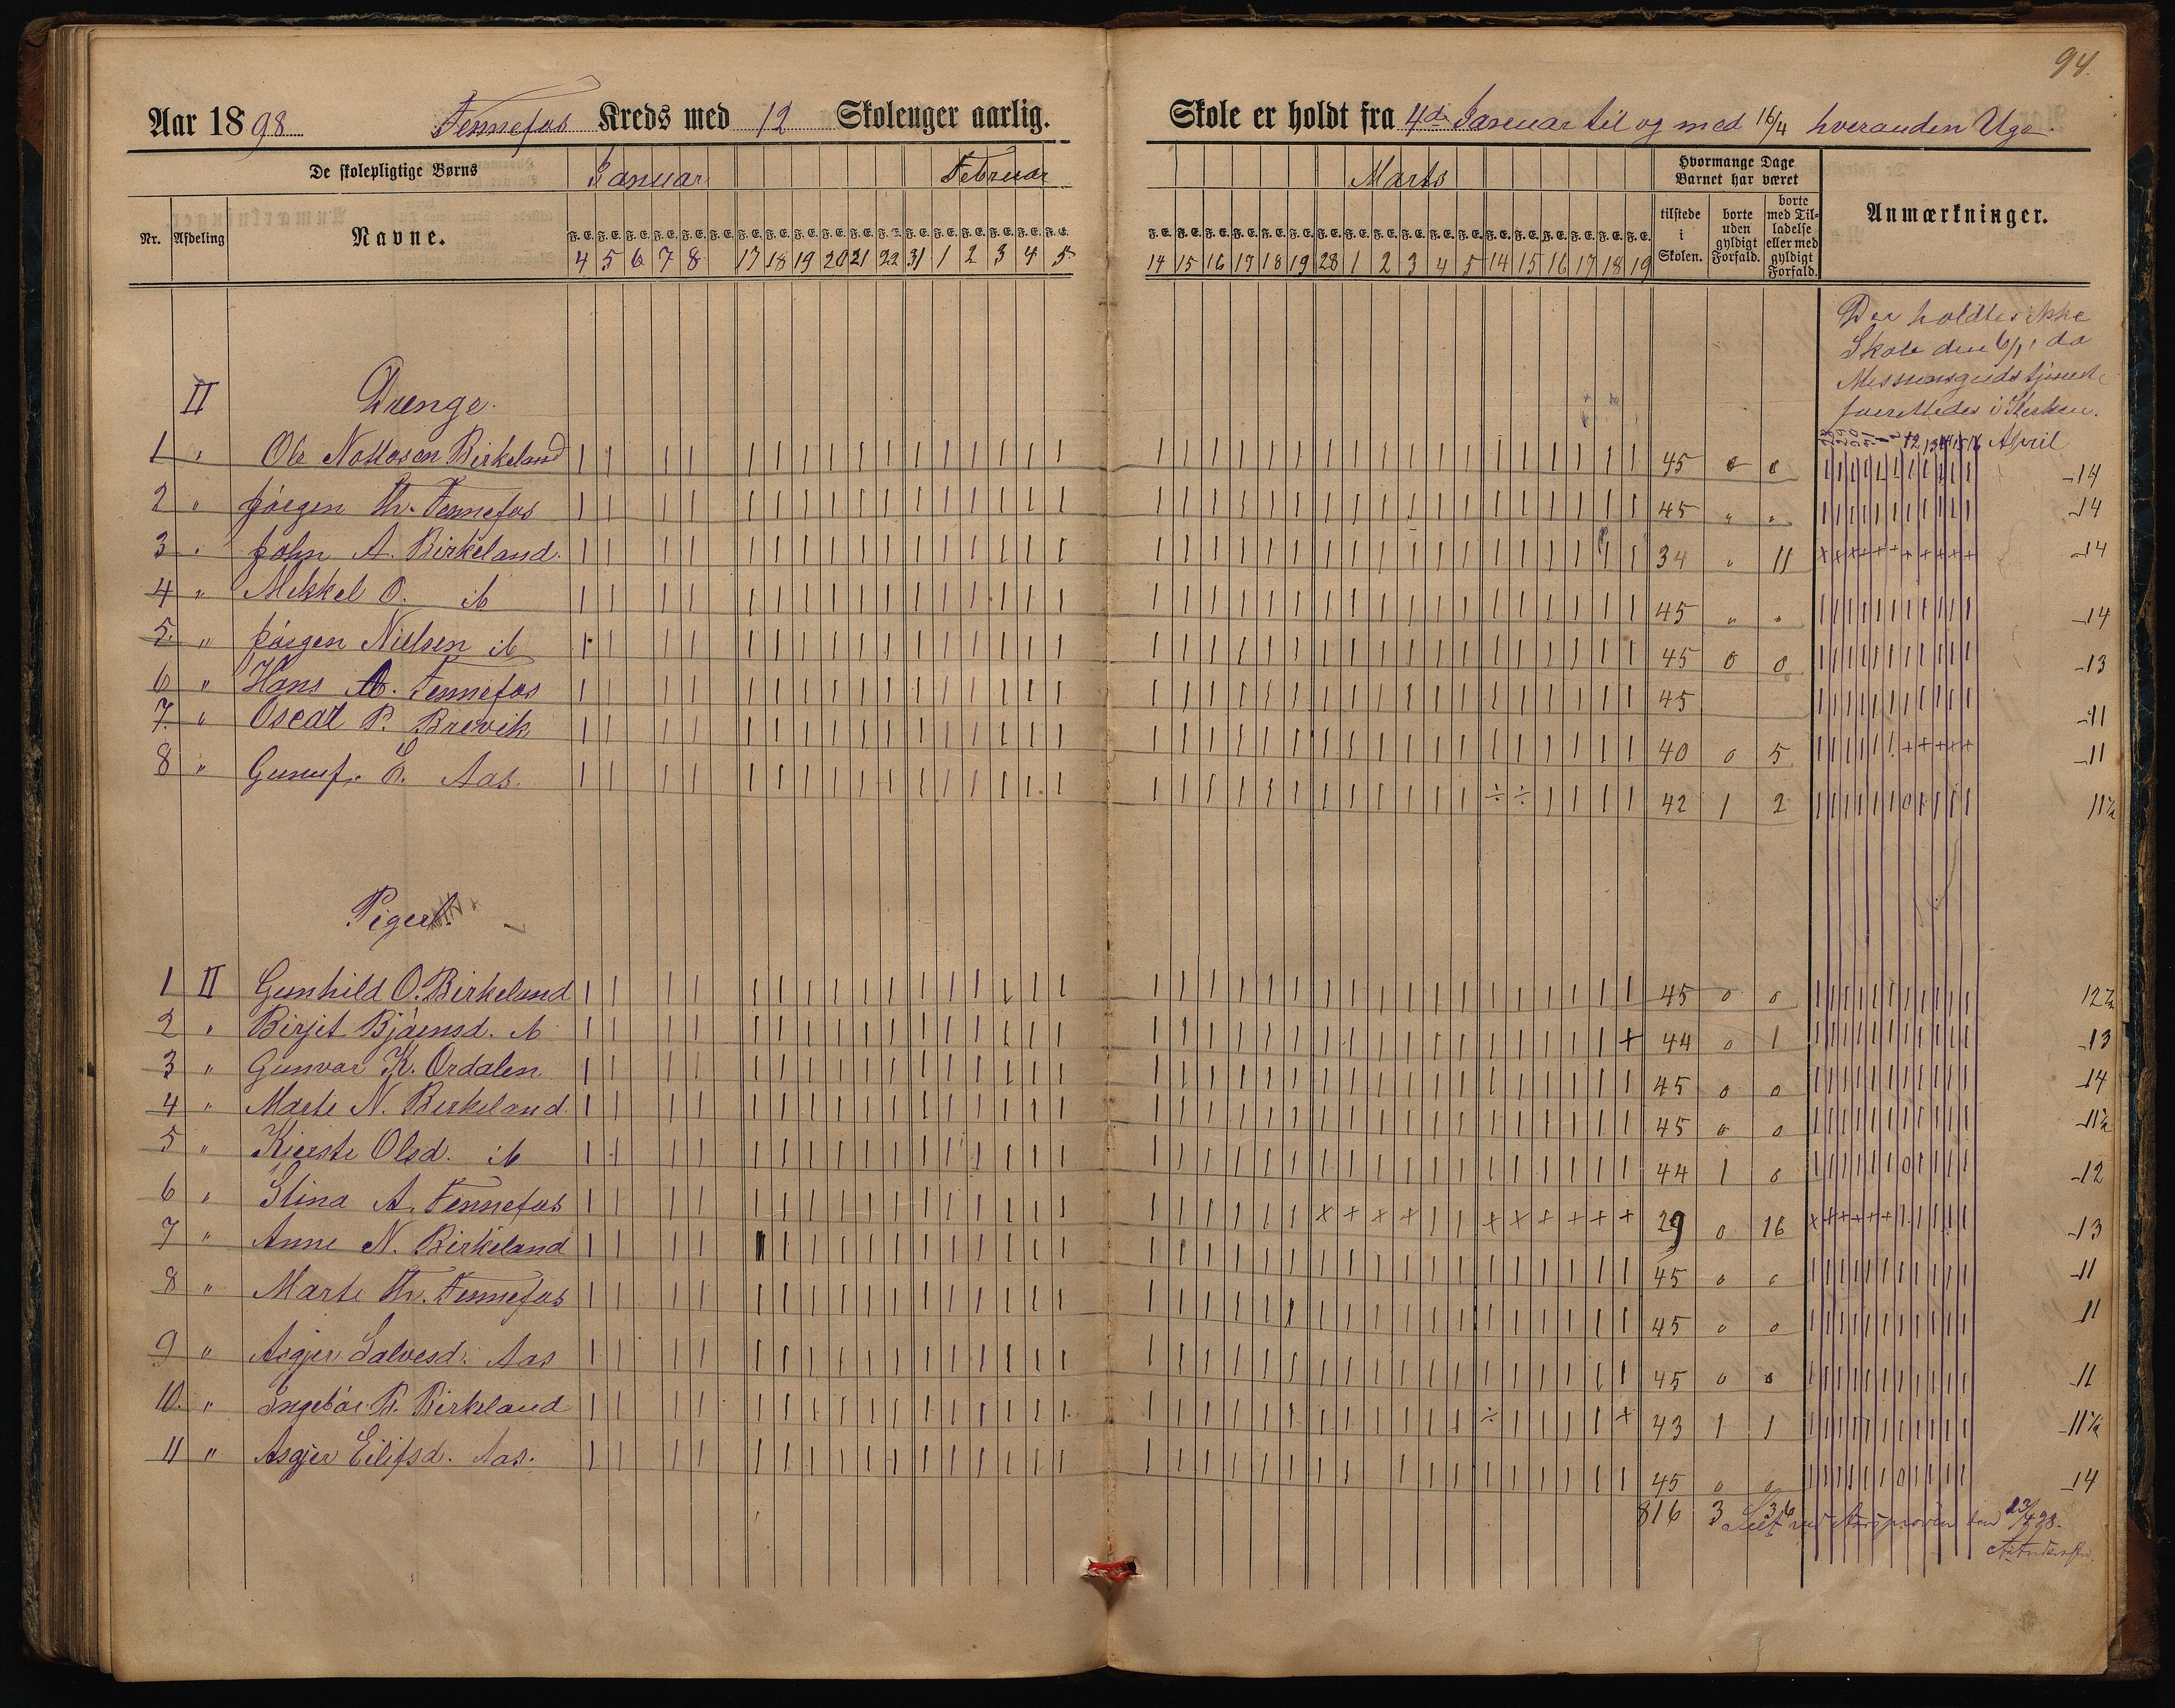 94.
Aar 1898 Fennefos Kreds med 12 Skoleuger aarlig.
Skole er holdt fra 4de Januar til og med 16/4 hveranden Uge.
De skolepligtige Børns
Januar Februar
Marts
Hvormange Dage Barnet har været
Nr. Afdeling Navne.
F. E. F. E. F. E. F. E. F. E. F. E. F. E. F. E. F. E. F. E. F. E. F. E. F. E. F. E. F. E. F. E. F. E. F. E.
4 5 6 7 8 17 18 19 20 21 22 31 1 2 3 4 5
F. E. F. E. F. E. F. E. F. E. F. E. F. E. F. E. F. E. F. E. F. E. F. E. F. E. F. E. F. E. F. E. F. E. F. E.
14 15 16 17 18 19 28 1 2 3 4 5 14 15 16 17 18 19
tilstede i Skolen.
borte uden gyldigt Forfald.
borte med Tilladelse eller med gyldigt Forfald.
Anmærkninger.
Der holdtes ikke
Skole den 6/1, da
Missionsgudstjeneste
forrettedes i Kirken.
12 13 14 15 16 April
II Drenge.
1 " Ole Nottosen Birkeland 45 0 0 14
2 " Jørgen Th. Fennefos 45 " " 14
3 " John A. Birkeland. 34 " 11 14
4 " Mikkel O. ib 45 " " 14
5. " Jørgen Nielsen ib 45 0 0 13
6 " Hans A. Fennefos 45 11
7. " Oscar P. Brevik 40 0 5 11
8 " Gunuf. E. Aas. 42 1 2 11½
Piger
1 II Gunhild O. Birkeland 45 0 0 12½
2 " Birjit Bjørnsd. ib 44 0 1 13
3 " Gunvor K. Ordalen 45 0 0 14
4 " Marte N. Birkeland. 45 0 0 11½
5 " Kirste Olsd. ib 44 1 0 12
6 " Stina A. Fennefos 29 0 16 13
7 " Anne N. Birkeland 45 0 0 11
8 " Marte Th. Fennefos 45 0 0 11
9 " Asgjer Salvesd. Aas 45 0 0 11
10. " Ingebør P. Birkeland 43 1 1 11½
11 " Asgjer Eilifsd. Aas. 45 0 0 14
816 3 36
Seet ved Aarsprøven den 23/4 98.